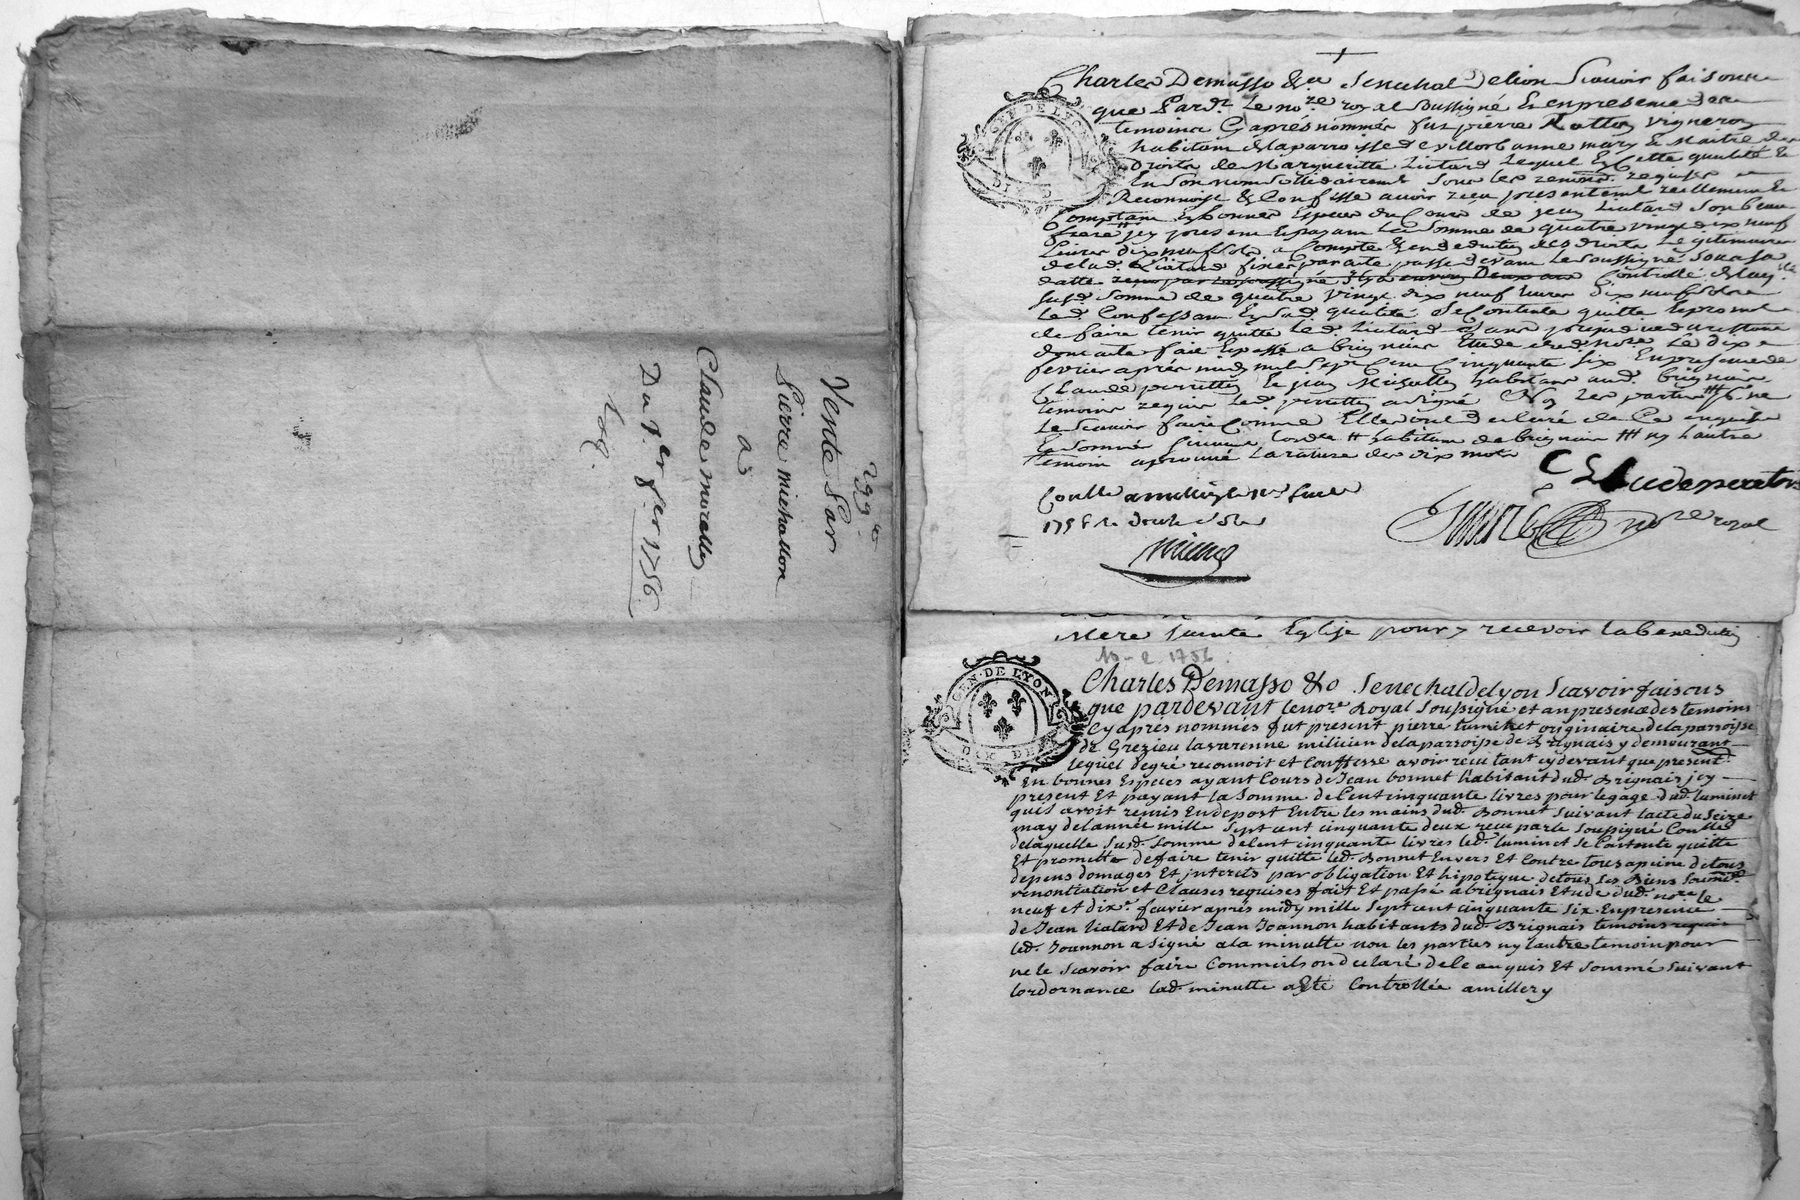 299e
Vente Par
Pierre michallon
à
Claude morelle
Du 7.er f.er 1756.
Charles Demasso &ca Senechal Delion Scavoir faisons
que Pard.t Le no.re royal Soussigné Et en presence des
temoins Cy aprés nommés fut pierre vigneron
habitant de la parroisse de villorbanne mary Et Maitre des
Droits de Margueritte Liatard Lequel En Cette qualité Et
En Son nom Sollidairement Sous les renons. requises
Reconnoit & Confesse avoir reçu presentement reellement Et
Comptant En bonnes Especes du Cours de jean Liatard Son beau
frere jcy present Et payant La Somme de quatre vingt dix neuf
Livres dix neuf Sols a Compte & en deduction des droits Legitimaires
de lad. Liatard fixés par acte passé devant Le Soussigné Sous Sa
datte Controllé de laq.lle
Susd. Somme de quatre vingt dix neuf Livres dix neuf Sols
Led. Confessant En Sad. qualité Se Contente quitte Et promet
de faire tenir quitte Led. Liatard Sans prejudice du restant
dont acte fait Et passé a brignais Etude dud. no.re Le dix
fevrier aprés midy mil Sept Cent Cinquante Six En presence de
Claude perretton Et jean habitans aud. brignais
temoins requis Led. perretton a Signé Non Les parties ne
Le Scavoir faire Comme Elles ont declaré de Ce enquises
Et Sommés Suivant Lord.ce # habitant de brignais ### ny Lautre
temoin aprouvé La rature de dix mots
Claude perreton
Contllé a millery le fevrier
1756 R. douze Sols
no.re royal
Mere Sainte Eglise pour y recevoir la benediction
10-2-1756
GEN. DE LYON
DIX DE
Charles Demasso &a Senechal de lyon Scavoir faisons
que pardevant le no.re Royal Soussigné et en presence des temoins
Cyaprés nommés fut present pierre luminet originaire de la parroisse
de Grezieu lavarenne milicien de la parroisse de Brignais y demeurant
lequel degré reconnoit et Confesse avoir recu tant cy devant que present.
En bonnes Especes ayant Cours de Jean bonnet habitant dud. Brignais jcy
present Et payant la Somme de Cent cinquante livres pour le gage dud. luminet
quil avoit remis En depost Entre les mains dud. Bonnet Suivant lacte du Seize
may de lannée mille Sept cent cinquante deux recu par le Soussigné Conllé
de laquelle Susd. Somme de Cent cinquante livres led. luminet Se Contente quitte
Et promette de faire tenir quitte led. Bonnet Envers Et Contre tous a peine de tous
depens domages Et jnterets par obligation Et hipoteque de tous Ses Biens Soumd.
renontiation et Clauses requises fait Et passé a brignais Etude dud. no.re le
neuf et dix.e fevrier aprés midy mille Sept cent cinquante Six. En presence
de Jean liatard Et de Jean Joannon habitants dud. Brignais temoins requis
led. Joannon a Signé a la minutte non les parties ny lautre temoin pour
ne le Scavoir faire Comme ils ont declaré de Ce enquis Et Sommé Suivant
lordornance lad. minutte a Esté Controllée a millery